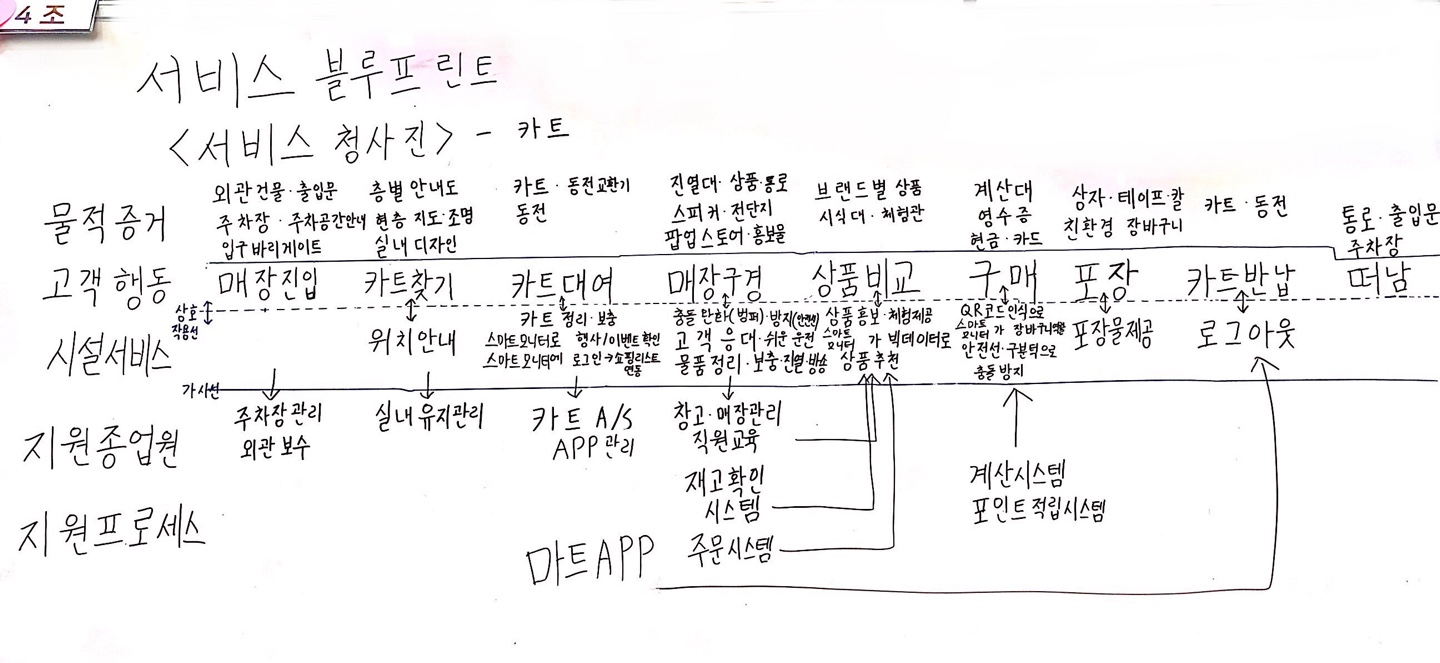 4조
서비스 블루프린트
<서비스 청사진> - 카트
물적증거
외관건물·출입문
주차장·주차공간안내
입구바리게이트
층별 안내도
현층 지도·조명
실내 디자인
카트·동전교환기
동전
진열대·상품·통로
스피커·전단지
팝업스토어·홍보물
브랜드별 상품
시식대·체험관
계산대
영수증
현금·카드
상자·테이프·칼
친환경 장바구니
카트·동전
통로·출입문
주차장
고객행동
매장진입
카트찾기
카트대여
매장구경
상품비교
구매
포장
카트반납
떠남
상호
작용선
시설서비스
위치안내
카트 정리·보충
스마트모니터로 행사/이벤트확인
스마트모니터에 로그인→쇼핑리스트
연동
충돌 탄하(범퍼)·방지(안전선)
고객응대·쉬운 운전
물품정리·보충·진열·방송
상품홍보·체험제공
스마트
모니터가 빅데이터로
상품추천
QR코드인식으로
스마트
모니터가 장바구니역할
안전선·구분턱으로
충돌방지
포장물제공
로그아웃
가시선
지원종업원
주차장관리
외관보수
실내유지관리
카트 A/S
APP관리
창고·매장관리
직원교육
지원프로세스
재고확인
시스템
마트APP
주문시스템
계산시스템
포인트적립시스템